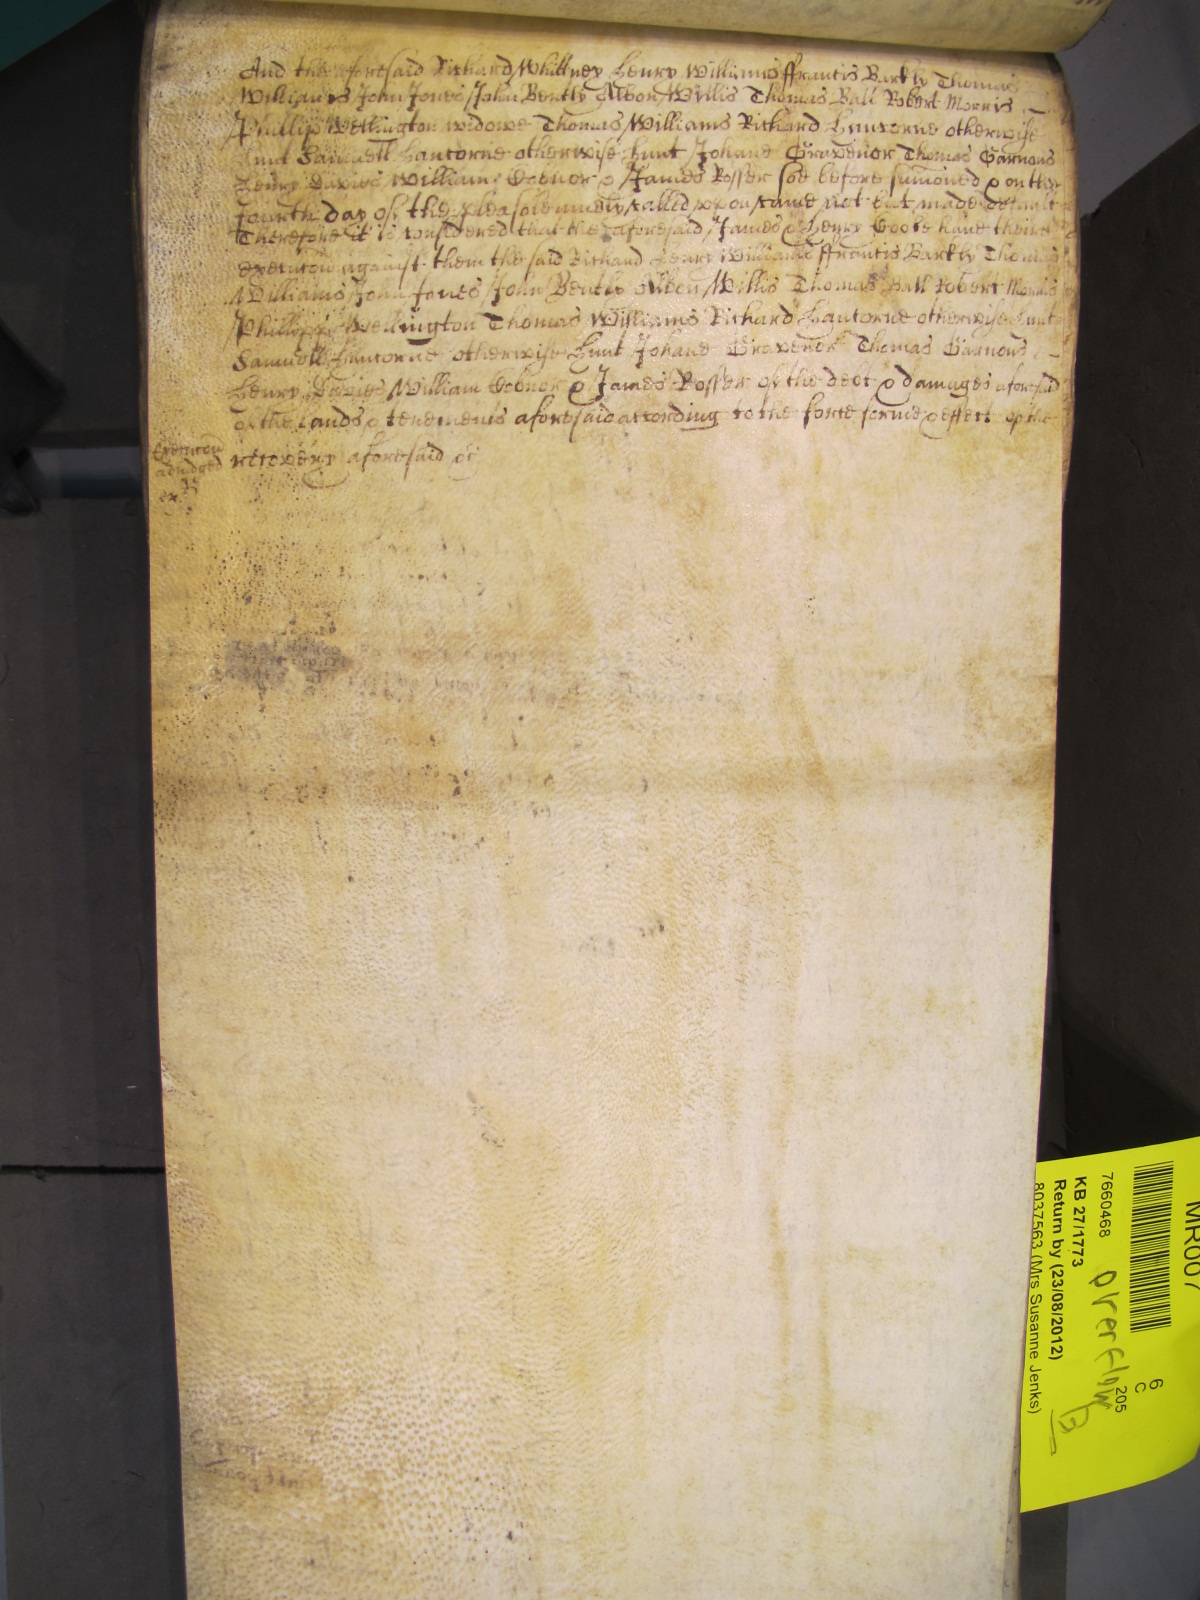 And the aforesaid Richard Whittney Henry Williams ffrancis Barkly Thomas
Williams John Jones John Bently Albon Willis Thomas Ball Robert Morris
Phillip Wellington widowe Thomas Williams Richard Hantorne otherwise
Hunt Samuell Hantorne otherwise Hunt Johane Gravenor Thomas Garnons
Henry Davies William & James Rosser soe before sumoned & on the
fourth day of the plea solemnely called upon came not but made default
Therefore it is considered that the aforesaid James & Henry Coole have their
execucon against them the said Richard Henry Williams ffrancis Barkly Thomas
Williams John Jones John Bently Albon Willis Thomas Ball Robert Morris
Phillip Wellington Thomas Williams Richard Hantorne otherwise Hunt
Samuell Hantorne otherwise Hunt Johane Gravenor Thomas Garnons
Henry Davies William & James Rosser of the debt & damages aforesaid
of the Lands & tenements aforesaid according to the force forme & effect of the
recovery aforesaid &c
Execucon
adiudged
MR007
6
C
205
7660468
KB 27/1773
Return by (23/08/2012)
8037563 (Mrs Susanne Jenks)
overflow